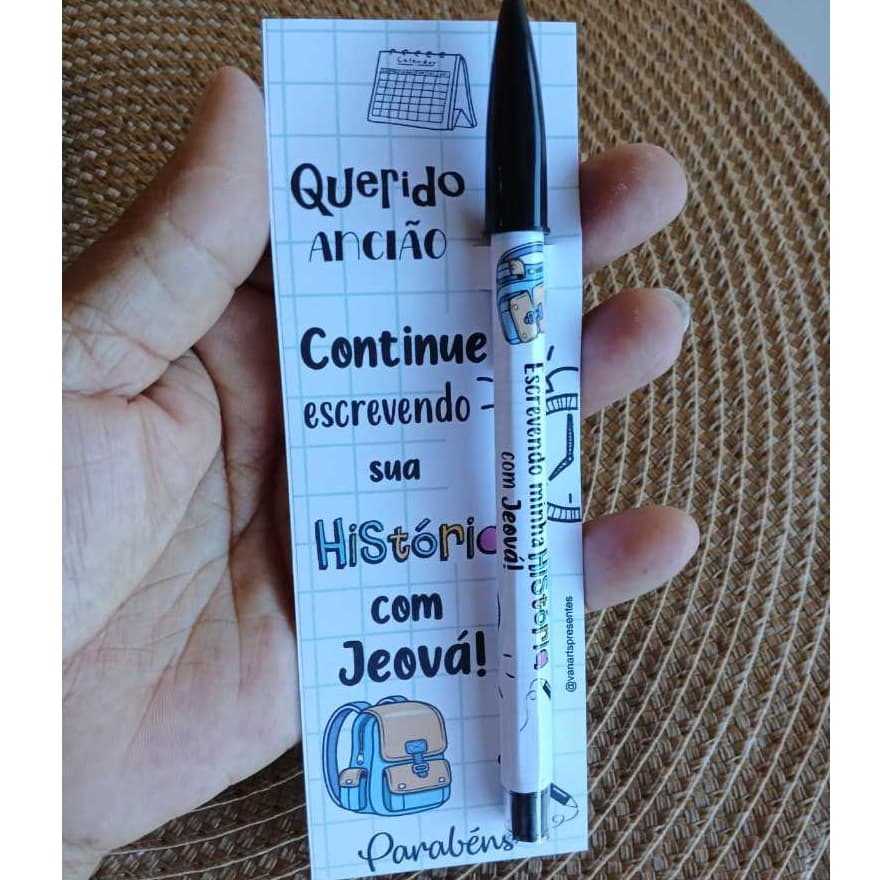 Calendar
Querido
ANCIÃO
Continue
escrevendo
sua
HiStóriα
com
Jeová!
Parabéns
Escrevendo minha HiStóriα
com Jeová!
@vanartspresentes